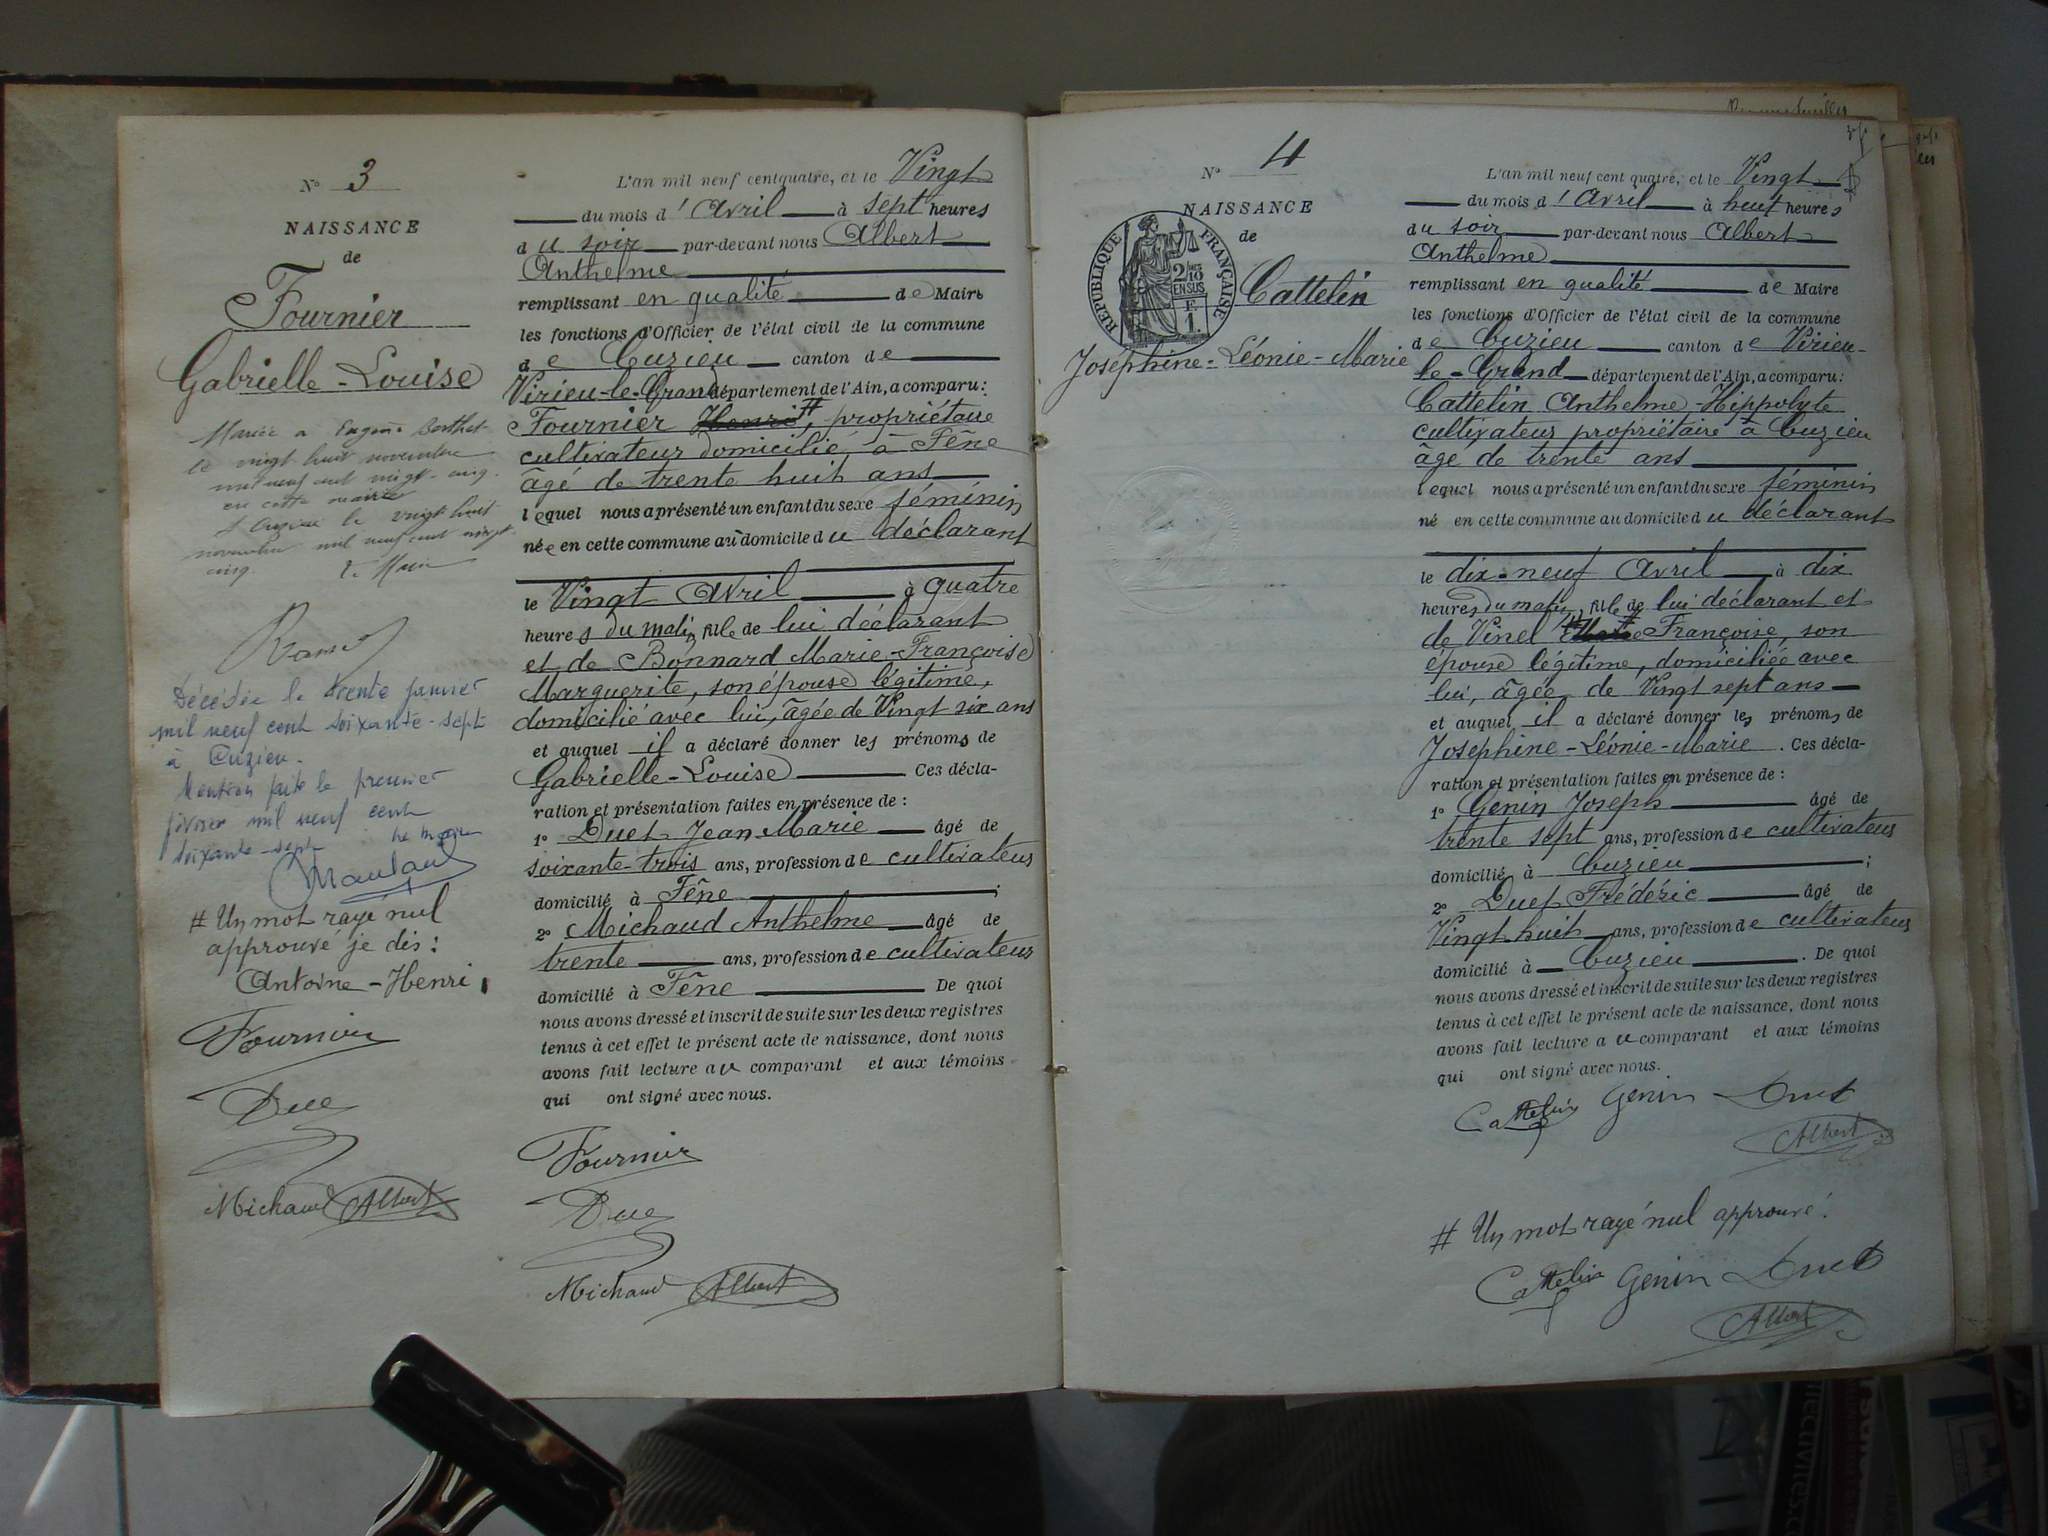 N° 3
NAISSANCE
de
Fournier
Gabrielle-Louise
Mariée a Eugène Berthet
le vingt huit novembre
mil neuf cent vingt-cinq
en cette mairie
Cuzieu le vingt huit
novembre mil neuf cent vingt
cinq. Le Maire
Décédée le trente janvier
mil neuf cent soixante-sept
à Cuzieu.
Mention faite le premier
février mil neuf cent
soixante-sept Le maire
# Un mot rayé nul
approuvé je dis:
Antoine-Henri
Fournier
Duc
Michaud Albert
L'an mil neuf cent quatre, et le Vingt
du mois d'Avril à sept heures
du soir par-devant nous Albert
Anthelme
remplissant en qualité de Maire
les fonctions d'Officier de l'état civil de la commune
de Cuzieu canton de
Virieu-le-Grand département de l'Ain, a comparu:
Fournier Henri #, propriétaire
cultivateur domicilié à Fêne
âgé de trente huit ans
lequel nous a présenté un enfant du sexe féminin
née en cette commune au domicile du déclarant
le Vingt Avril à quatre
heures du matin fille de lui déclarant
et de Bonnard Marie-Françoise
Marguerite, son épouse légitime,
domicilié avec lui, âgée de Vingt six ans
et auquel il a déclaré donner les prénoms de
Gabrielle-Louise Ces décla-
ration et présentation faites en présence de:
1° Duet Jean-Marie âgé de
soixante-trois ans, profession de cultivateur
domicilié à Fêne;
2° Michaud Anthelme âgé de
trente ans, profession de cultivateur
domicilié à Fêne De quoi
nous avons dressé et inscrit de suite sur les deux registres
tenus à cet effet le présent acte de naissance, dont nous
avons fait lecture au comparant et aux témoins
qui ont signé avec nous.
Fournier
Duc
Michaud Albert
N° 4
NAISSANCE
de
RÉPUBLIQUE FRANÇAISE
2/10 EN SUS
F. 1.
Cattelin
Joséphine-Léonie-Marie
L'an mil neuf cent quatre, et le Vingt
du mois d'Avril à huit heures
du soir par-devant nous Albert
Anthelme
remplissant en qualité de Maire
les fonctions d'Officier de l'état civil de la commune
de Cuzieu canton de Virieu-
le-Grand département de l'Ain, a comparu:
Cattelin Anthelme-Hippolyte
cultivateur propriétaire à Cuzieu
âgé de trente ans
lequel nous a présenté un enfant du sexe féminin
né en cette commune au domicile du déclarant
le dix-neuf Avril à dix
heures du matin, fille de lui déclarant et
de Vinel # Françoise, son
épouse légitime, domiciliée avec
lui, âgée de Vingt sept ans
et auquel il a déclaré donner les prénoms de
Joséphine-Léonie-Marie. Ces décla-
ration et présentation faites en présence de:
1° Genin Joseph âgé de
trente sept ans, profession de cultivateur
domicilié à Cuzieu;
2° Duet Frédéric âgé de
Vingt huit ans, profession de cultivateur
domicilié à Cuzieu. De quoi
nous avons dressé et inscrit de suite sur les deux registres
tenus à cet effet le présent acte de naissance, dont nous
avons fait lecture au comparant et aux témoins
qui ont signé avec nous.
Cattelin Genin Duet
Albert
# Un mot rayé nul approuvé.
Cattelin Genin Duet
Albert